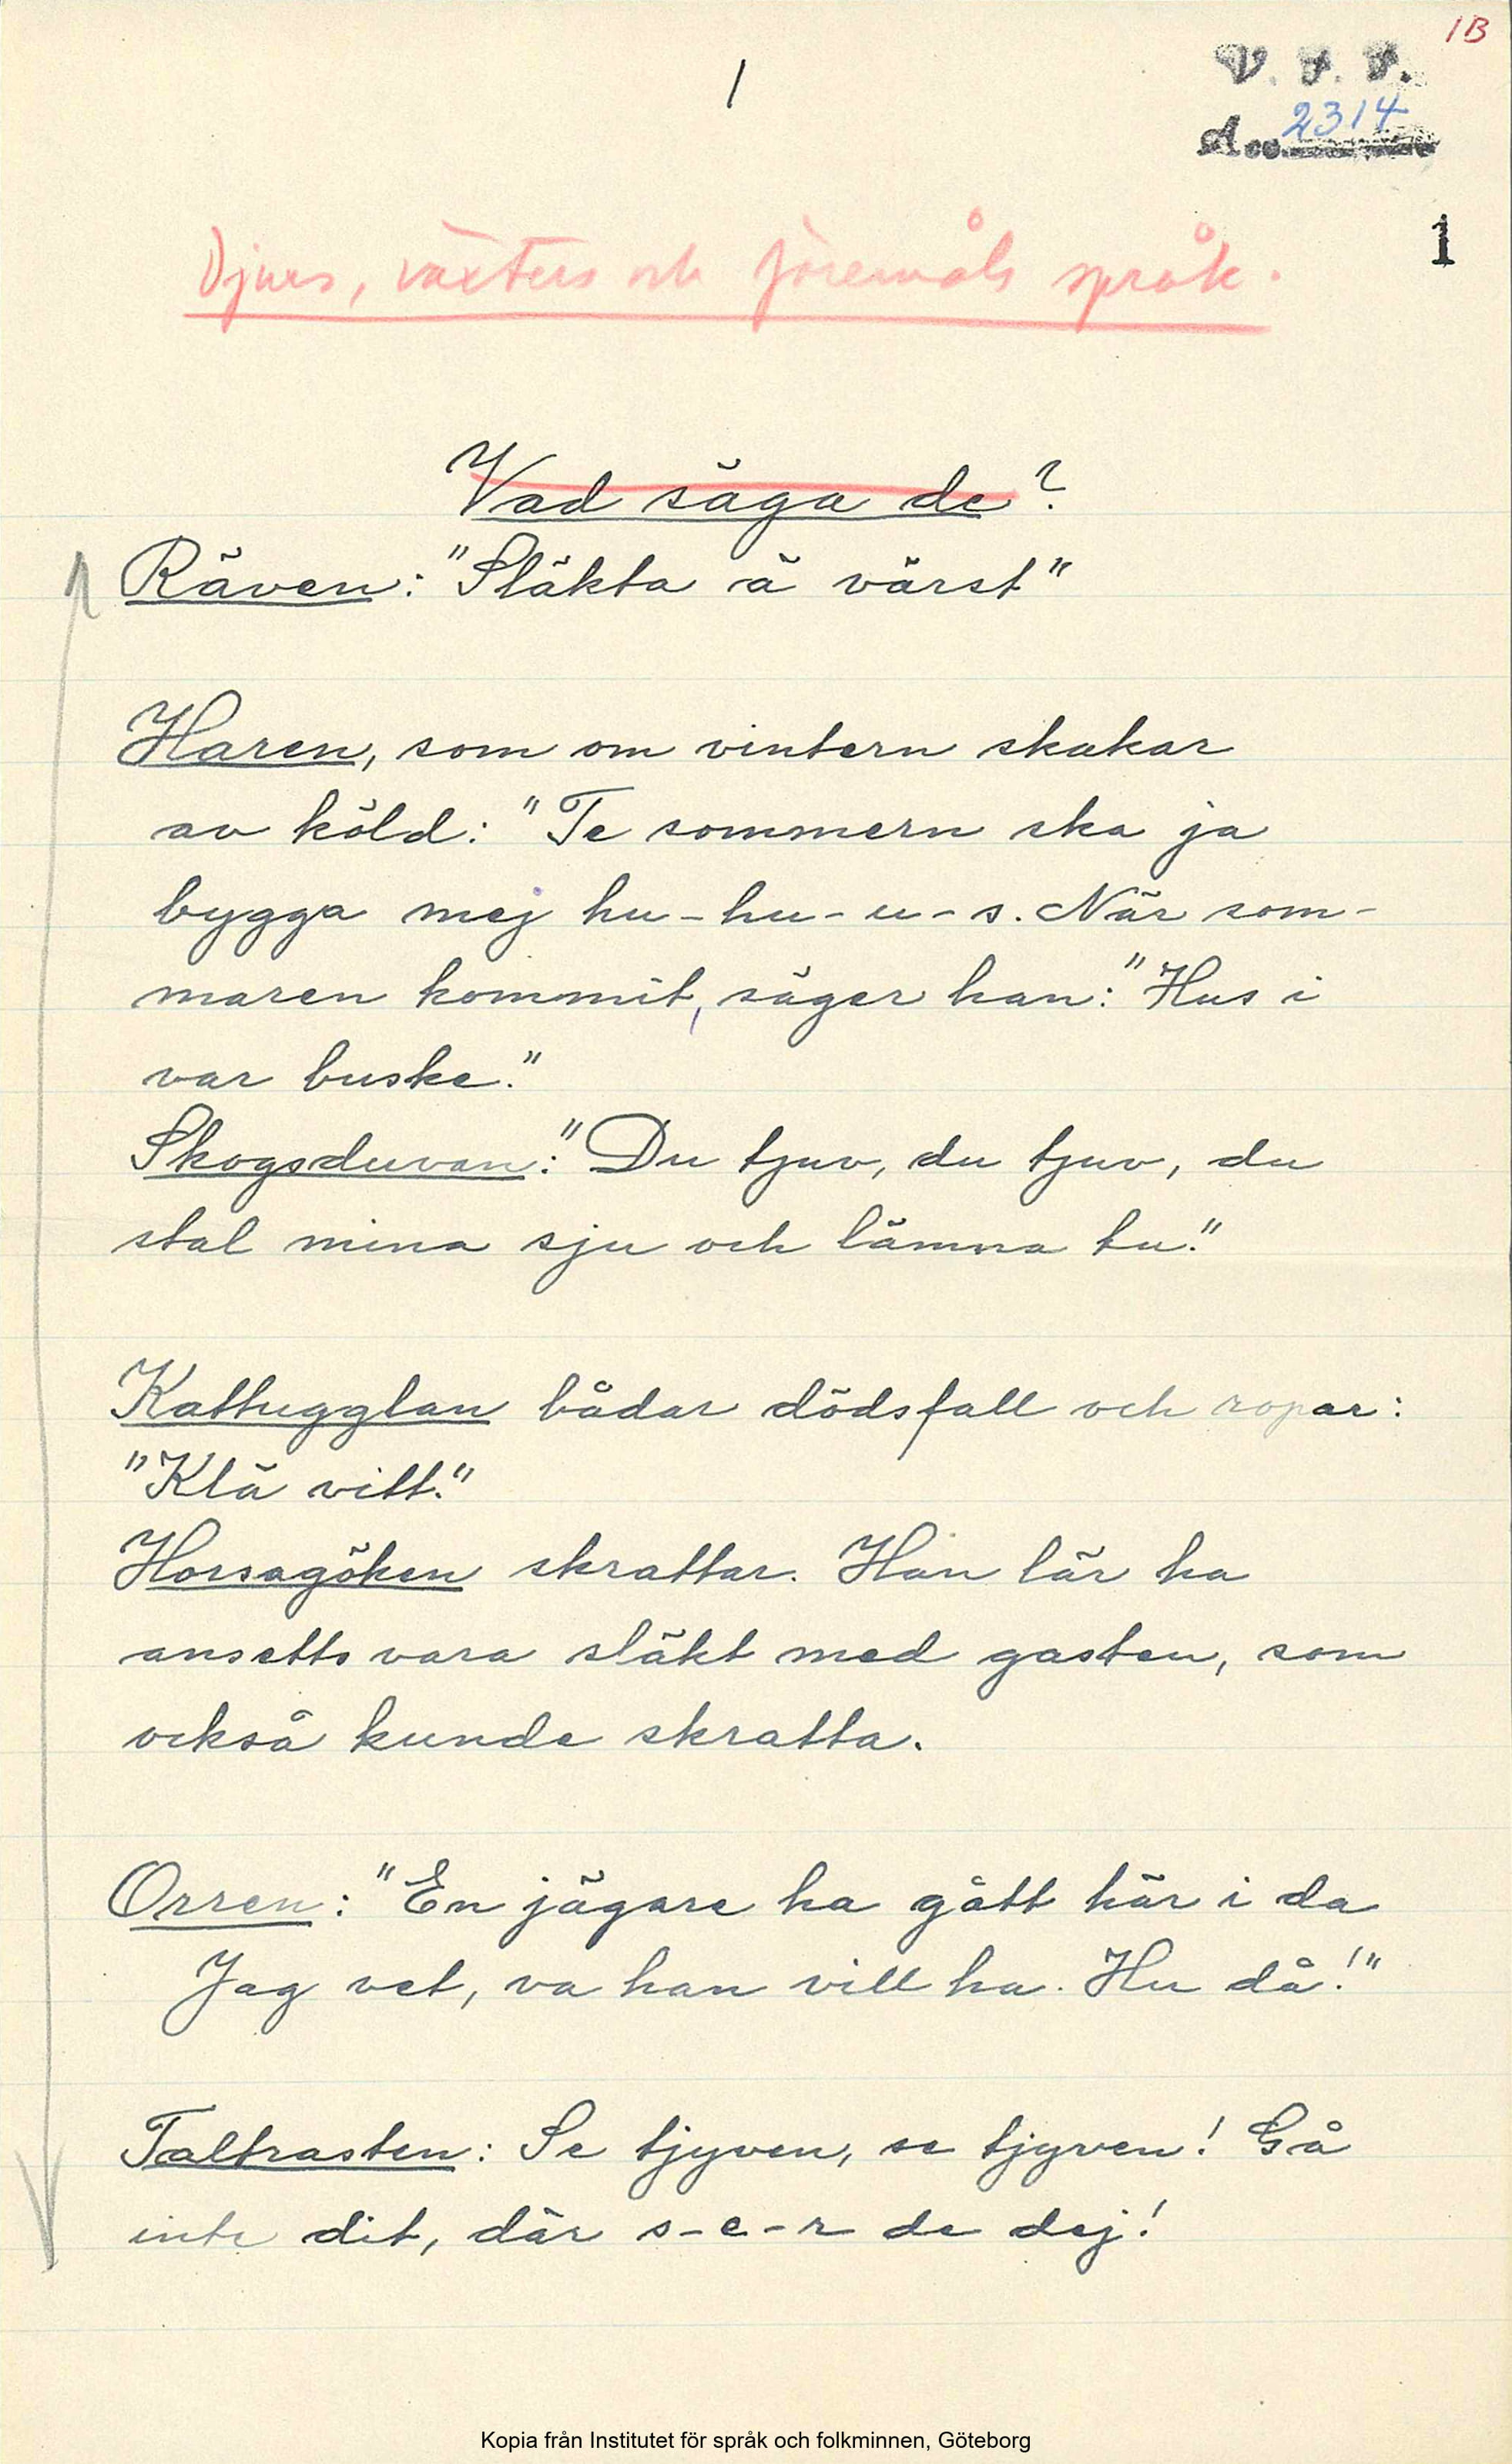 1B
1
V. F. F.
Acc. 2314
1
Djurs, växters och föremåls språk.
Vad säga de?
Räven: "Släkta ä värst"
Haren, som om vintern skakar
av köld: "Te sommern ska ja
bygga mej hu-hu-u-s. När som-
maren kommit, säger han: "Hus i
var buske."
Skogsduvan: "Du tjuv, du tjuv, du
stal mina sju och lämna tu."
Kattugglan bådar dödsfall och ropar:
"Klä vitt."
Horsagöken skrattar. Han lär ha
ansetts vara släkt med gasten, som
också kunde skratta.
Orren: "En jägare ha gått här i da
Jag vet, va han vill ha. Hu då!"
Taltrasten: Se tjyven, se tjyven! Gå
inte dit, där s-e-r de dej!
Kopia från Institutet för språk och folkminnen, Göteborg